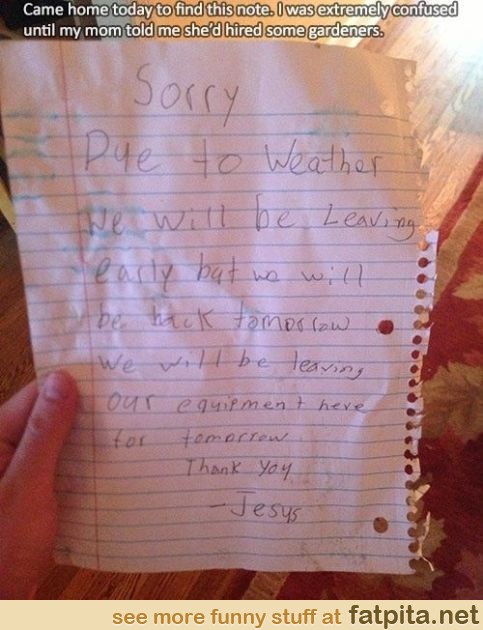 Came home today to find this note. I was extremely confused
until my mom told me she'd hired some gardeners.
Sorry
Due to Weather
We will be Leaving
early but we will
be back tomorrow
We will be leaving
our equipment here
for tomorrow
Thank you
- Jesus
see more funny stuff at fatpita.net